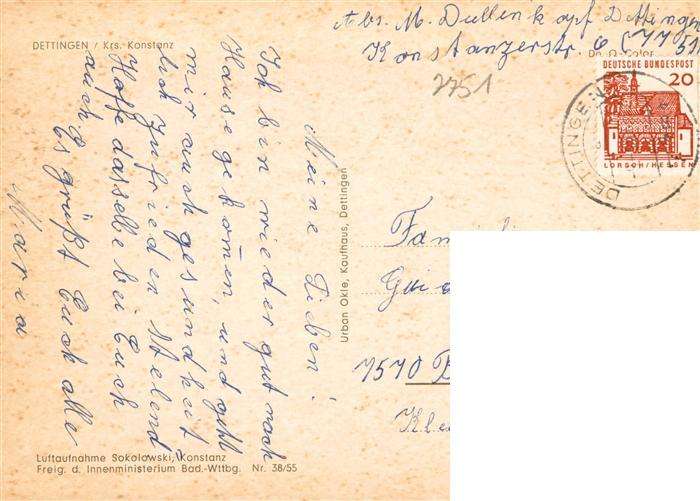 DETTINGEN / Krs. Konstanz
Abs. M. Dullenkopf Dettingen
Konstanzerstr. 6 7751
7751
DEUTSCHE BUNDESPOST
20
LORSCH/HESSEN
DETTINGEN
Meine Lieben!
Ich bin wieder gut nach
Hause gekomen, und geht
mir auch gesundheit-
lich zufrieden stelend
Hoffe dasselbe bei Euch
auch. Es grüßt Euch alle
Maria
Urban Okle, Kaufhaus, Dettingen
Fami
7570 B
Luftaufnahme Sokolowski, Konstanz
Freig. d. Innenministerium Bad.-Wttbg. Nr. 38/55